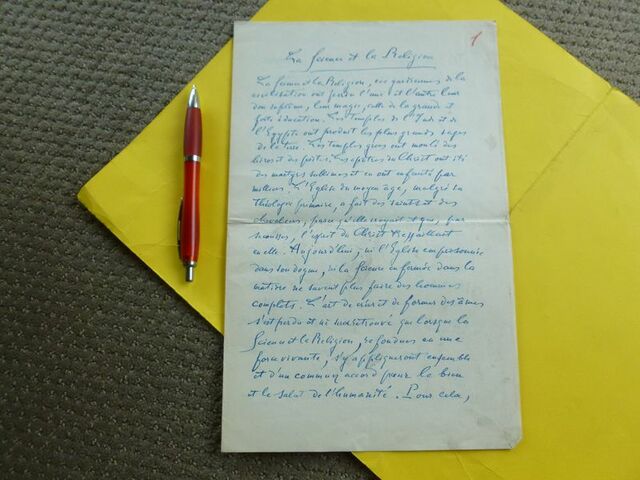 1
La Science et la Religion
La Science et la Religion, ces gardiennes de la
civilisation ont perdu l'une et l'autre leur
don suprême, leur magie, celle de la grande et
forte éducation. Les temples de l'Inde et de
l'Egypte ont produit les plus grands sages
de la terre. Les temples grecs ont moulé des
héros et des poètes. Les apôtres du Christ ont été
des martyrs sublimes et en ont enfanté par
milliers. L'Eglise du moyen âge, malgré sa
théologie primaire, a fait des saints et des
chevaliers, parce qu'elle croyait et que, par
secousses, l'esprit du Christ tressaillait
en elle. Aujourd'hui, ni l'Eglise emprisonnée
dans son dogme, ni la Science enfermée dans la
matière ne savent plus faire des hommes
complets. L'art de créer et de former des âmes
s'est perdu et ne sera retrouvé que lorsque la
Science et la Religion, refondues en une
force vivante, s'y appliqueront ensemble
et d'un commun accord pour le bien
et le salut de l'humanité. Pour cela,